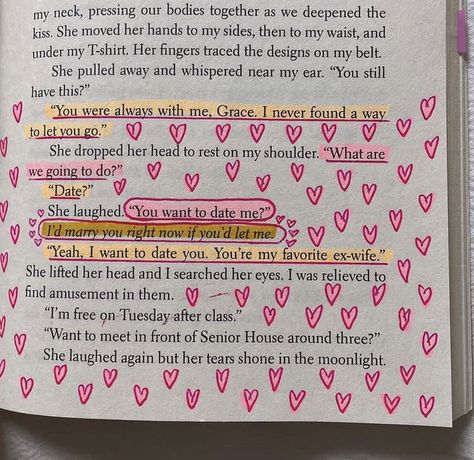 my neck, pressing our bodies together as we deepened the
kiss. She moved her hands to my sides, then to my waist, and
under my T-shirt. Her fingers traced the designs on my belt.
She pulled away and whispered near my ear. “You still
have this?”
“You were always with me, Grace. I never found a way
to let you go.”
She dropped her head to rest on my shoulder. “What are
we going to do?”
“Date?”
She laughed. “You want to date me?”
I’d marry you right now if you’d let me.
“Yeah, I want to date you. You’re my favorite ex-wife.”
She lifted her head and I searched her eyes. I was relieved to
find amusement in them.
“I’m free on Tuesday after class.”
“Want to meet in front of Senior House around three?”
She laughed again but her tears shone in the moonlight.